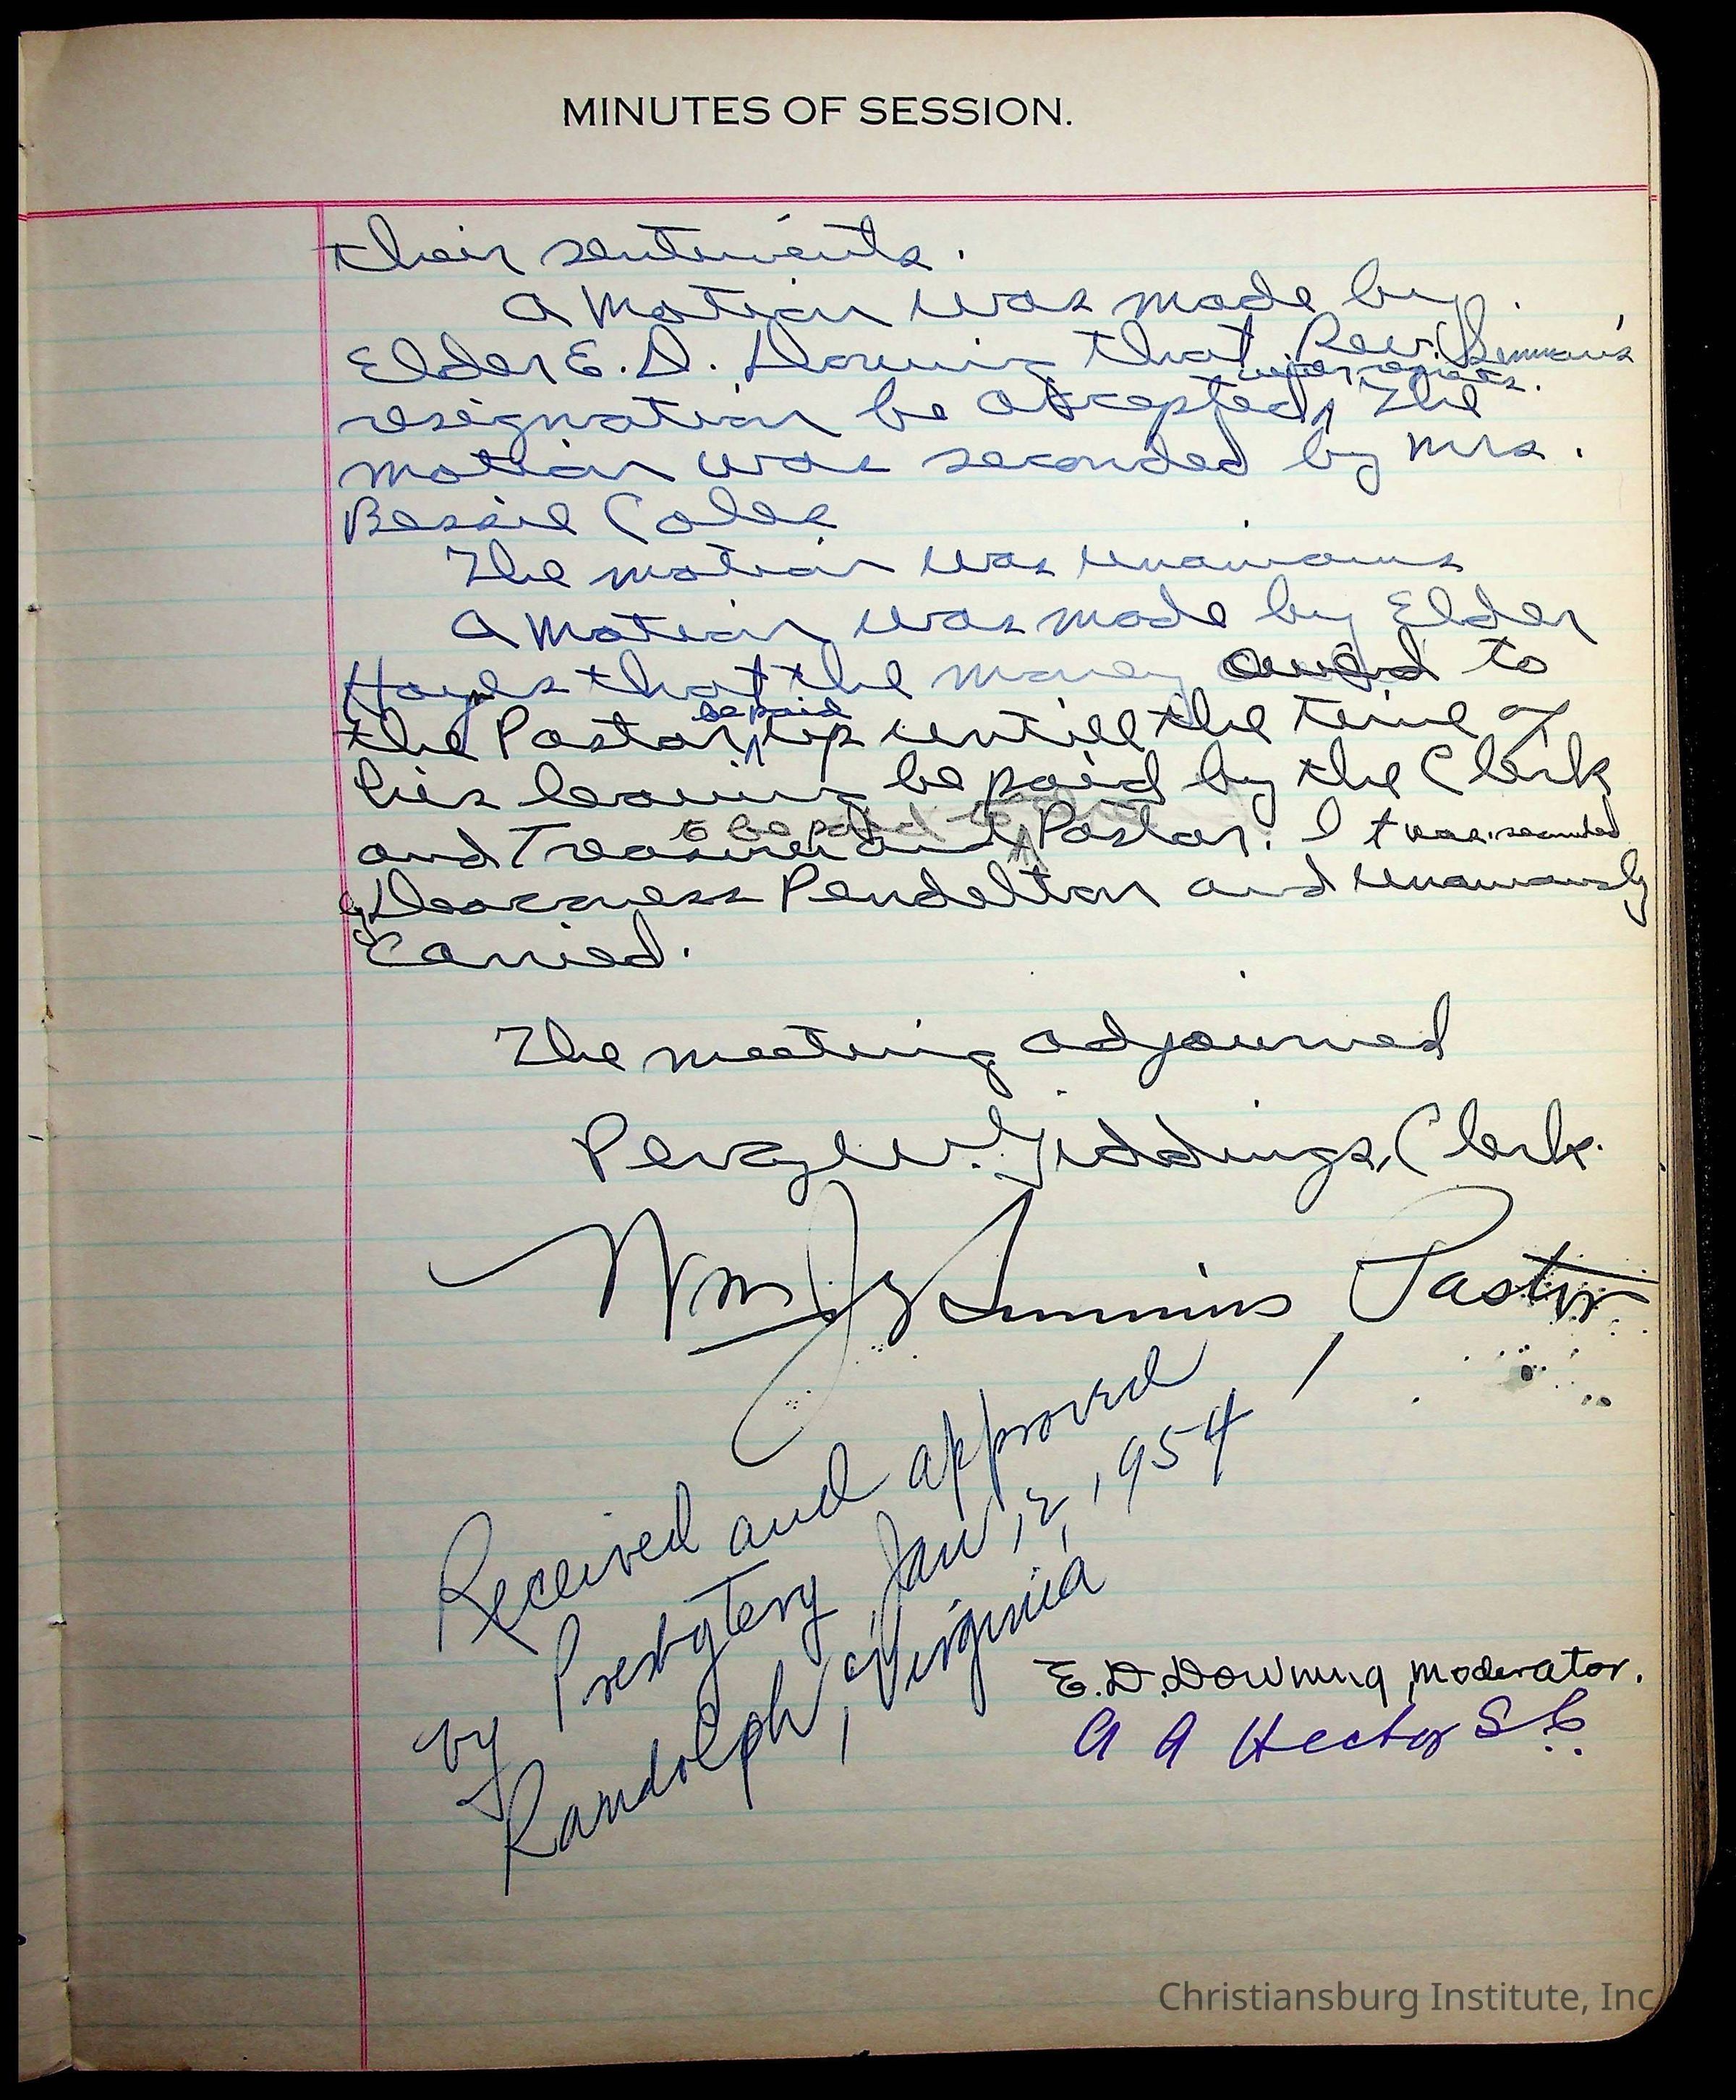 MINUTES OF SESSION.
their sentiments.
A Motion was made by
Elder E. D. Downing that Rev. Simmon's
with regrets.
resignation be accepted, The
motion was seconded by Mrs.
Bessie Coles
The motion was unamious
A Motion was made by Elder
Hayes that the money owed to
be paid
the Pastor up untill the time of
his leaving be paid by the Clerk
to be paid to
and Treasurer Pastor. It was seconded
by Deacness Pendelton and unamously
Carried.
The meeting adjourned
Percy W. Giddings, Clerk.
Wm J Simmons, Pastor
Received and approved
by Presbytery Jan, 2, 1954
Randolph, Virginia
E. D. Downing, Moderator.
A A Hector S. C.
Christiansburg Institute, Inc